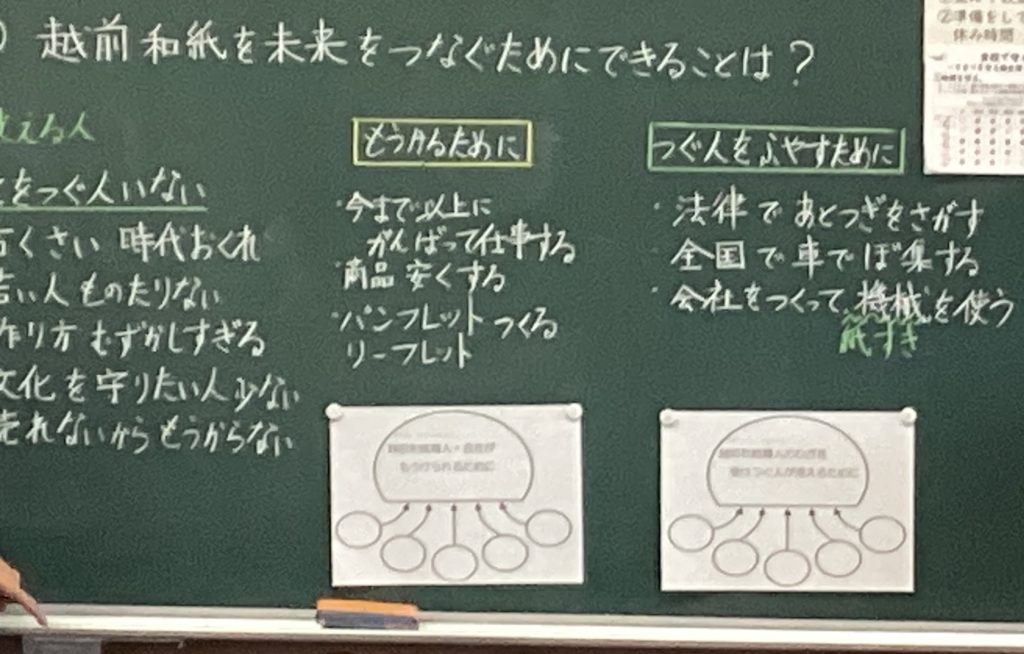 越前和紙を未来をつなぐためにできることは？
える人
をつぐ人いない
くさい 時代おくれ
い人ものたりない
作り方 むずかしすぎる
文化を守りたい人少ない
売れないからもうからない
もうかるために
・今まで以上に
がんばって仕事する
・商品安くする
・パンフレット つくる
リーフレット
つぐ人をふやすために
・法律であとつぎをさがす
・全国で車でぼ集する
・会社をつくって、機械を使う
紙すき
もうけられるために
②準備をして
休み時間